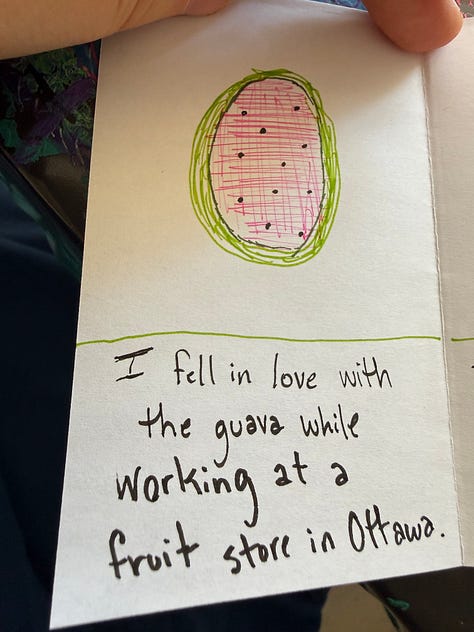 I fell in love with
the guava while
working at a
fruit store in Ottawa.